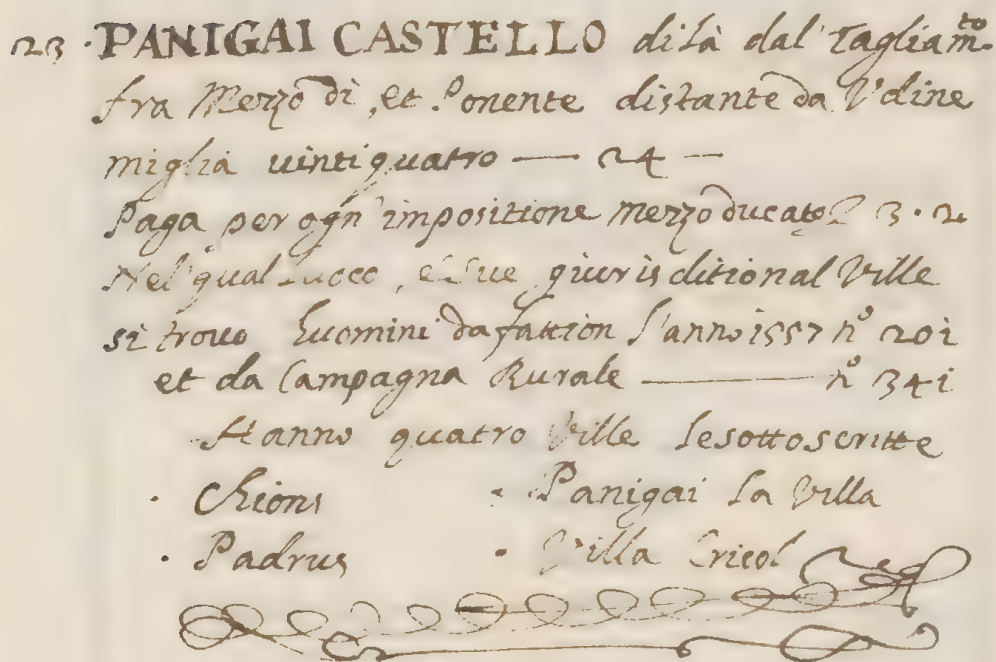 23 · PANIGAI CASTELLO di là dal Tagliam.to
fra Mezzo dì, et Ponente distante da Vdine
miglia uintiquatro — 24 —
Paga per ogn' impositione mezzo ducato 3 · 2
Nel qual Luoco, e sue giurisditional Ville
si trouo huomini da fattion l'anno 1557 n.o 201
et da Campagna Rurale — n.o 341
Hanno quatro Ville le sottoscritte
· Chions · Panigai la Villa
· Padrus · Villa Cricol